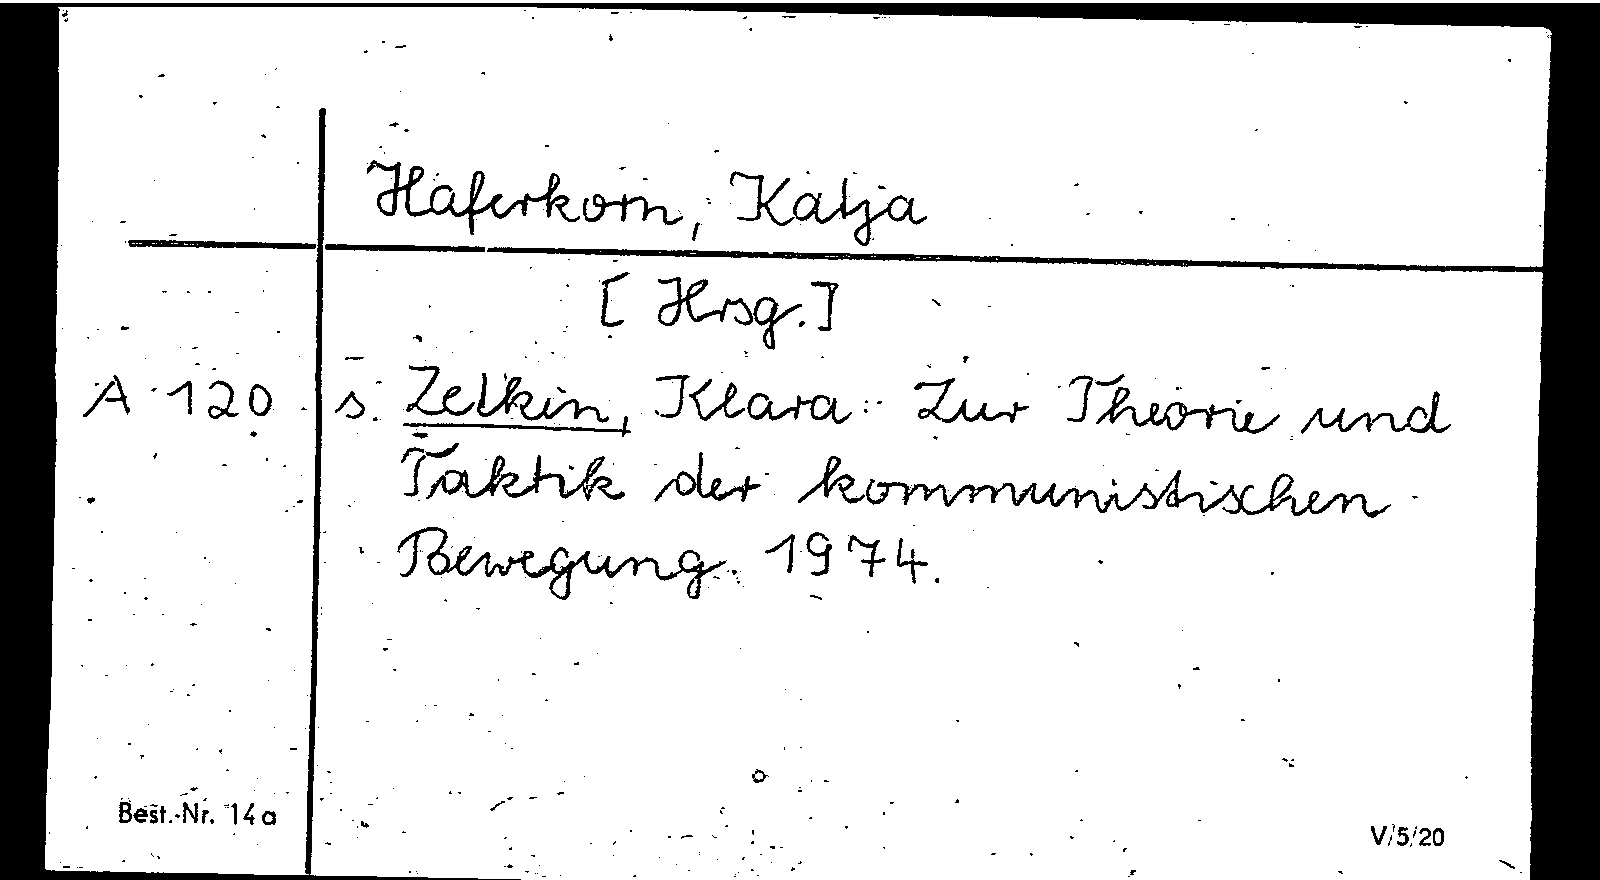 Haferkorn, Katja
[Hrsg.]
A 120 s. Zetkin, Klara: Zur Theorie und
Taktik der kommunistischen
Bewegung. 1974.
Best.-Nr. 14a
V/5/20